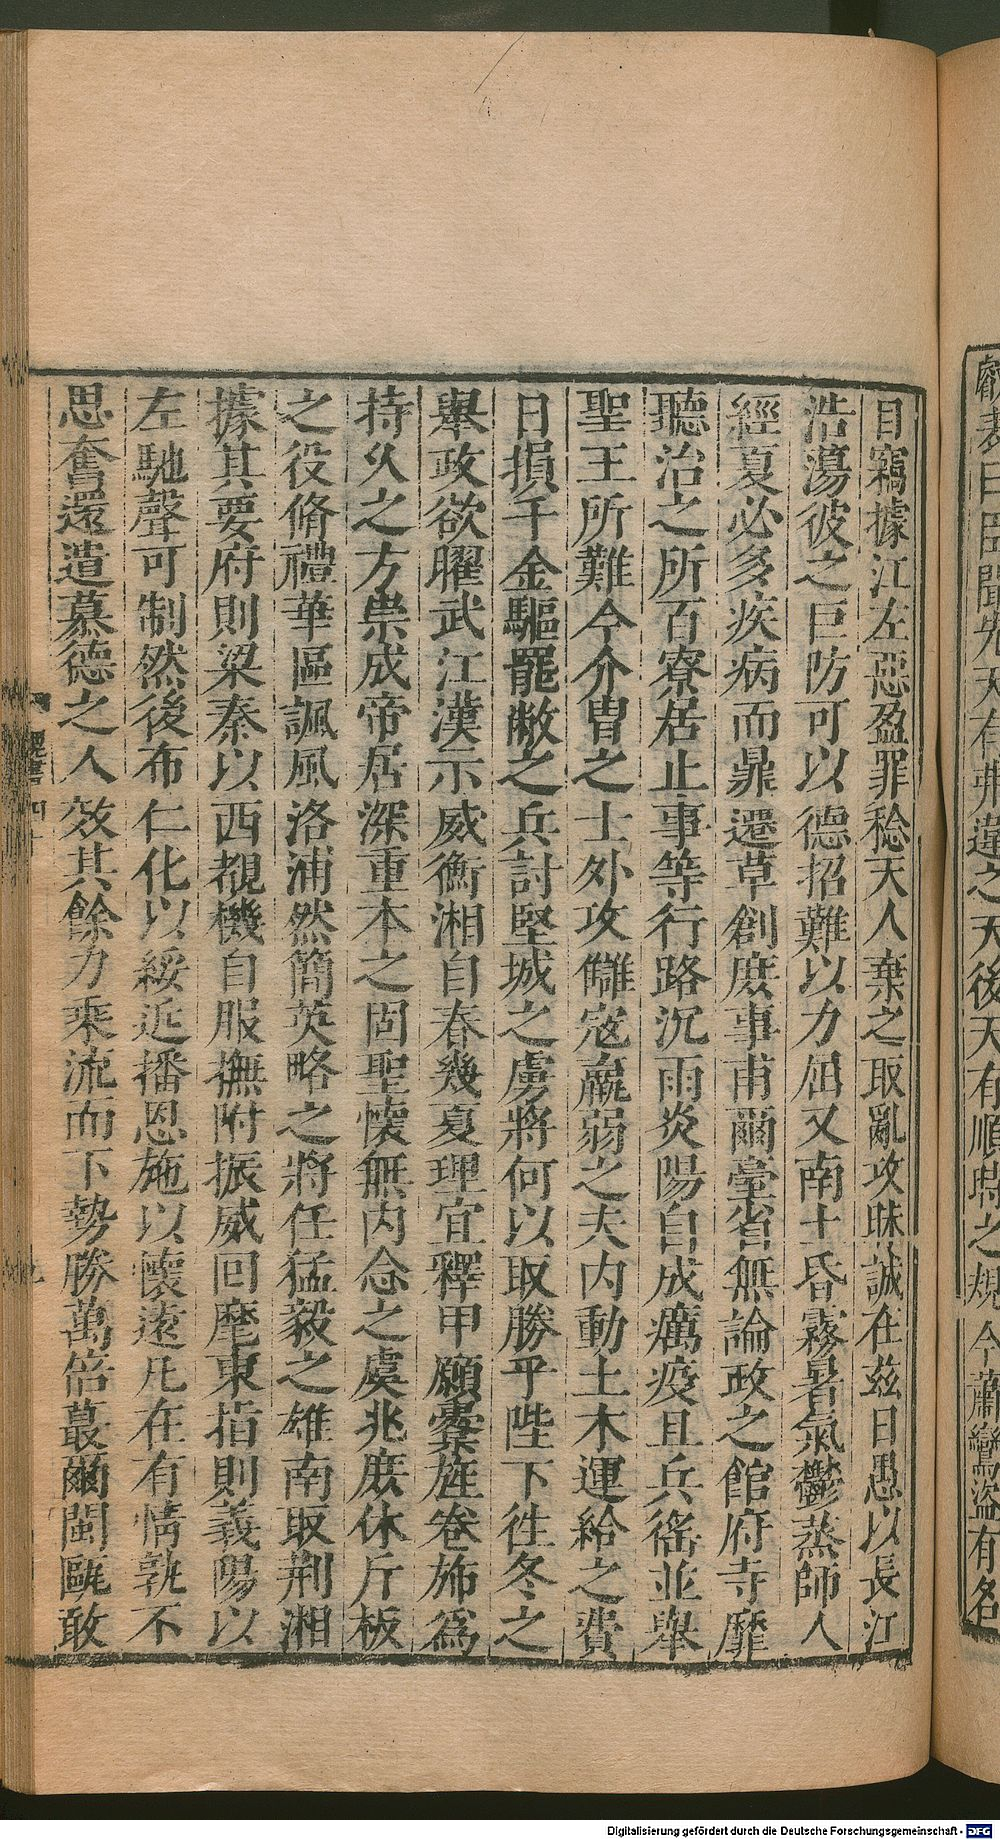 勰表曰臣聞先天有弗違之天後天有順時之規今蕭鸞盜有名
目竊據江左惡盈罪稔天人棄之取亂攻昧誠在兹日愚以長江
浩蕩彼之巨防可以德招難以力屈又南土昏霧暑氣鬱蒸師人
經夏必多疾病而鼎遷草創庶事甫爾臺省無論政之館府寺靡
聽治之所百寮居止事等行路沉雨炎陽自成癘疫且兵徭並舉
聖王所難今介冑之士外攻讎寇羸弱之夫内動土木運給之費
日損千金驅罷敝之兵討堅城之虜將何以取勝乎陛下往冬之
舉政欲曜武江漢示威衡湘自春幾夏理宜釋甲願櫜旌卷斾爲
持久之方崇成帝居深重本之固聖懷無内念之虞兆庶休斤板
之役脩禮華區諷風洛浦然簡英略之將任猛毅之雄南取荆湘
據其要府則梁秦以西覩機自服撫附振威回麾東指則義陽以
左馳聲可制然後布仁化以綏近播恩施以懷遠凡在有情孰不
思奮還遣慕德之人效其餘力乘流而下勢勝萬倍蕞爾閩甌敢
魏書四十
九
Digitalisierung gefördert durch die Deutsche Forschungsgemeinschaft - DFG